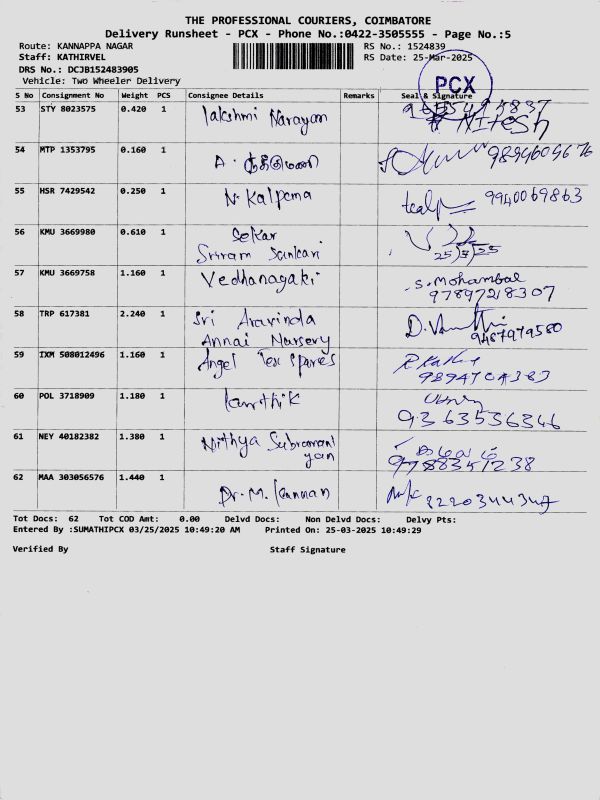 THE PROFESSIONAL COURIERS, COIMBATORE
Delivery Runsheet - PCX - Phone No.:0422-3505555 - Page No.:5
Route: KANNAPPA NAGAR RS No.: 1524839
Staff: KATHIRVEL RS Date: 25-Mar-2025
DRS No.: DCJB152483905
Vehicle: Two Wheeler Delivery
PCX
S No Consignment No Weight PCS Consignee Details Remarks Seal & Signature
53 STY 8023575 0.420 1 lakshmi Narayan
Nitesh
54 MTP 1353795 0.160 1 A.
55 HSR 7429542 0.250 1 N. Kalpema 9940069863
56 KMU 3669980 0.610 1 Sekar
Sriram Sankari 25/3/25
57 KMU 3669758 1.160 1 Vedhanagaki S. Mohambal
9789728307
58 TRP 617381 2.240 1 Sri Aravinda
Annai Nursery 9487979580
59 IXM 508012496 1.160 1 Angel Tex Spares
60 POL 3718909 1.180 1 karthik
9363536346
61 NEY 40182382 1.380 1 Nithya Subramani
yan 9788351238
62 MAA 303056576 1.440 1 Dr. M. Kannan
Tot Docs: 62 Tot COD Amt: 0.00 Delvd Docs: Non Delvd Docs: Delvy Pts:
Entered By :SUMATHIPCX 03/25/2025 10:49:20 AM Printed On: 25-03-2025 10:49:29
Verified By Staff Signature